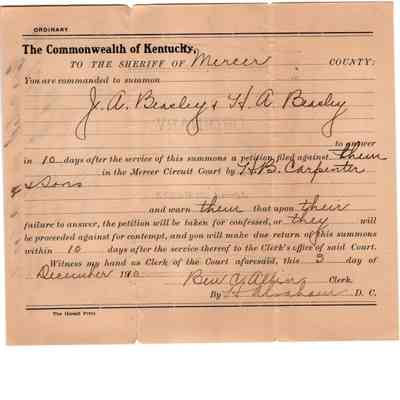 ORDINARY
The Commonwealth of Kentucky,
TO THE SHERIFF OF Mercer COUNTY:
You are commanded to summon
J. A. Beasley & H. A. Beasley
to answer
in 10 days after the service of this summons a petition filed against them
in the Mercer Circuit Court by H. B. Carpenter
& Sons
and warn them that upon their
failure to answer, the petition will be taken for confessed, or they will
be proceeded against for contempt, and you will make due return of this summons
within 10 days after the service thereof to the Clerk's office of said Court.
Witness my hand as Clerk of the Court aforesaid, this 3 day of
December 190
Ben Allin Clerk
By D. C.
The Herald Print